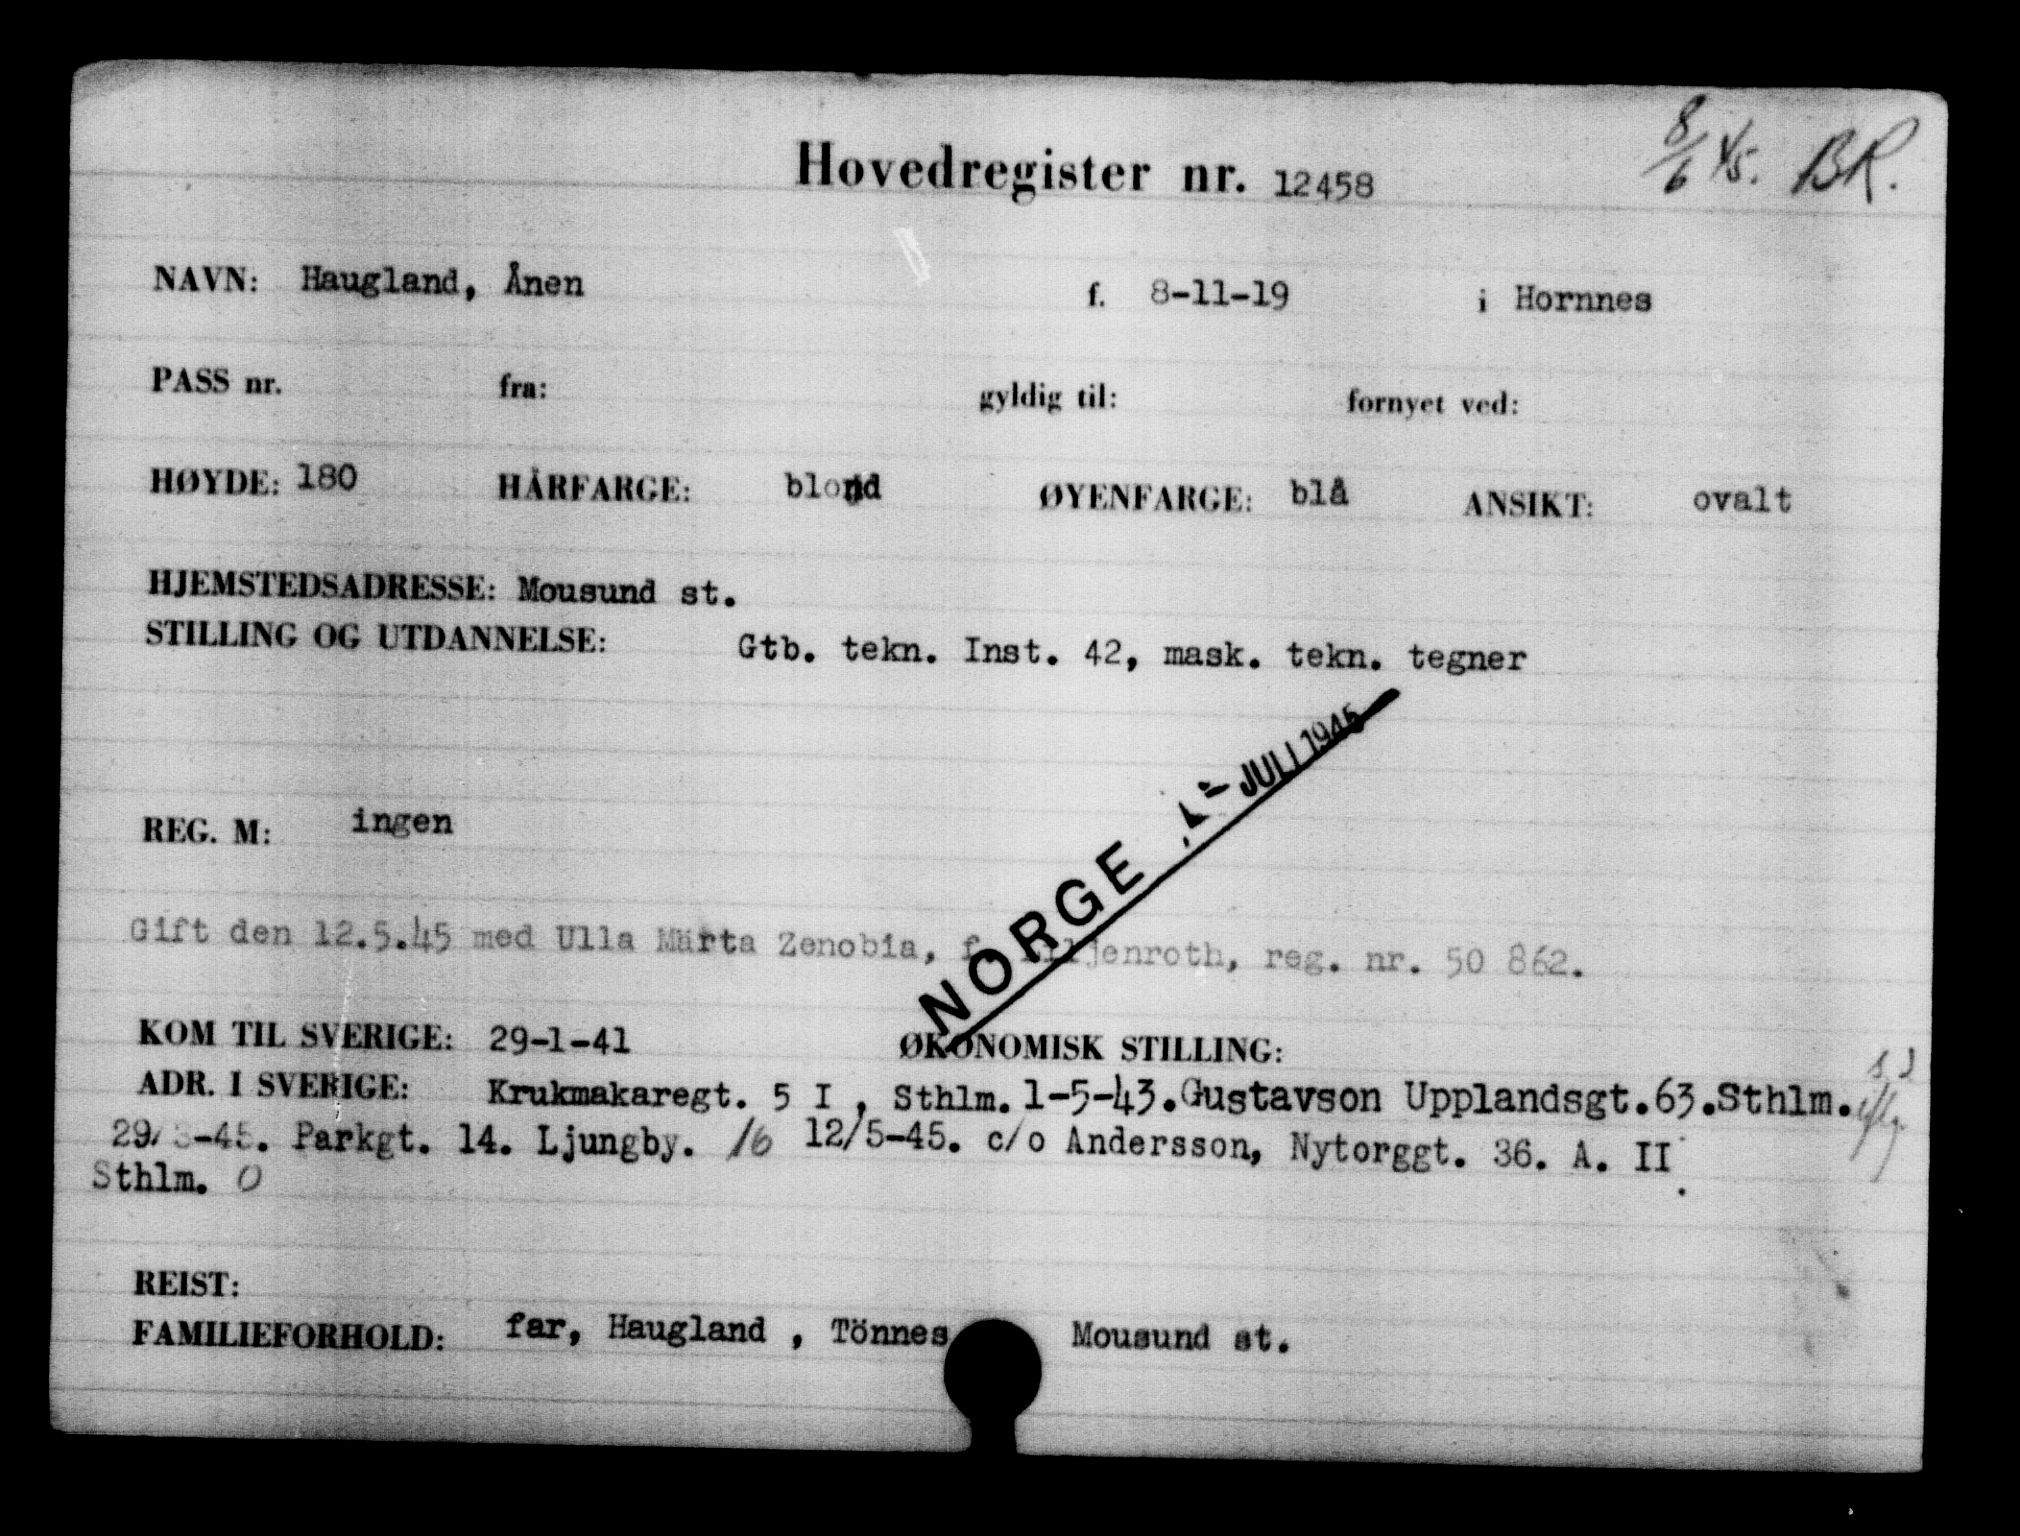 8/6 45. BR.
Hovedregister nr. 12458
NAVN: Haugland, Ånen f. 8-11-19 i Hornnes
PASS nr. fra: gyldig til: fornyet ved:
HØYDE: 180 HÅRFARGE: blond ØYENFARGE: blå ANSIKT: ovalt
HJEMSTEDSADRESSE: Mousund st.
STILLING OG UTDANNELSE: Gtb. tekn. Inst. 42, mask. tekn. tegner
REG. M: ingen
NORGE JULI 1945
Gift den 12.5.45 med Ulla Märta Zenobia, f. Liljenroth, reg. nr. 50 862.
KOM TIL SVERIGE: 29-1-41 ØKONOMISK STILLING:
ADR. I SVERIGE: Krukmakaregt. 5 I , Sthlm. 1-5-43. Gustavson Upplandsgt.63.Sthlm.
29/3-45. Parkgt. 14. Ljungby. 16 12/5-45. c/o Andersson, Nytorggt. 36. A. II
Sthlm. O
REIST:
FAMILIEFORHOLD: far, Haugland , Tönnes Mousund st.